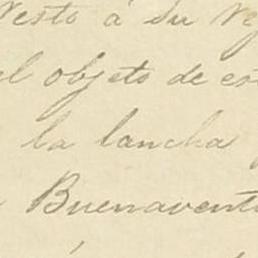 resto á su
el objeto de es
la lancha
Buenavent